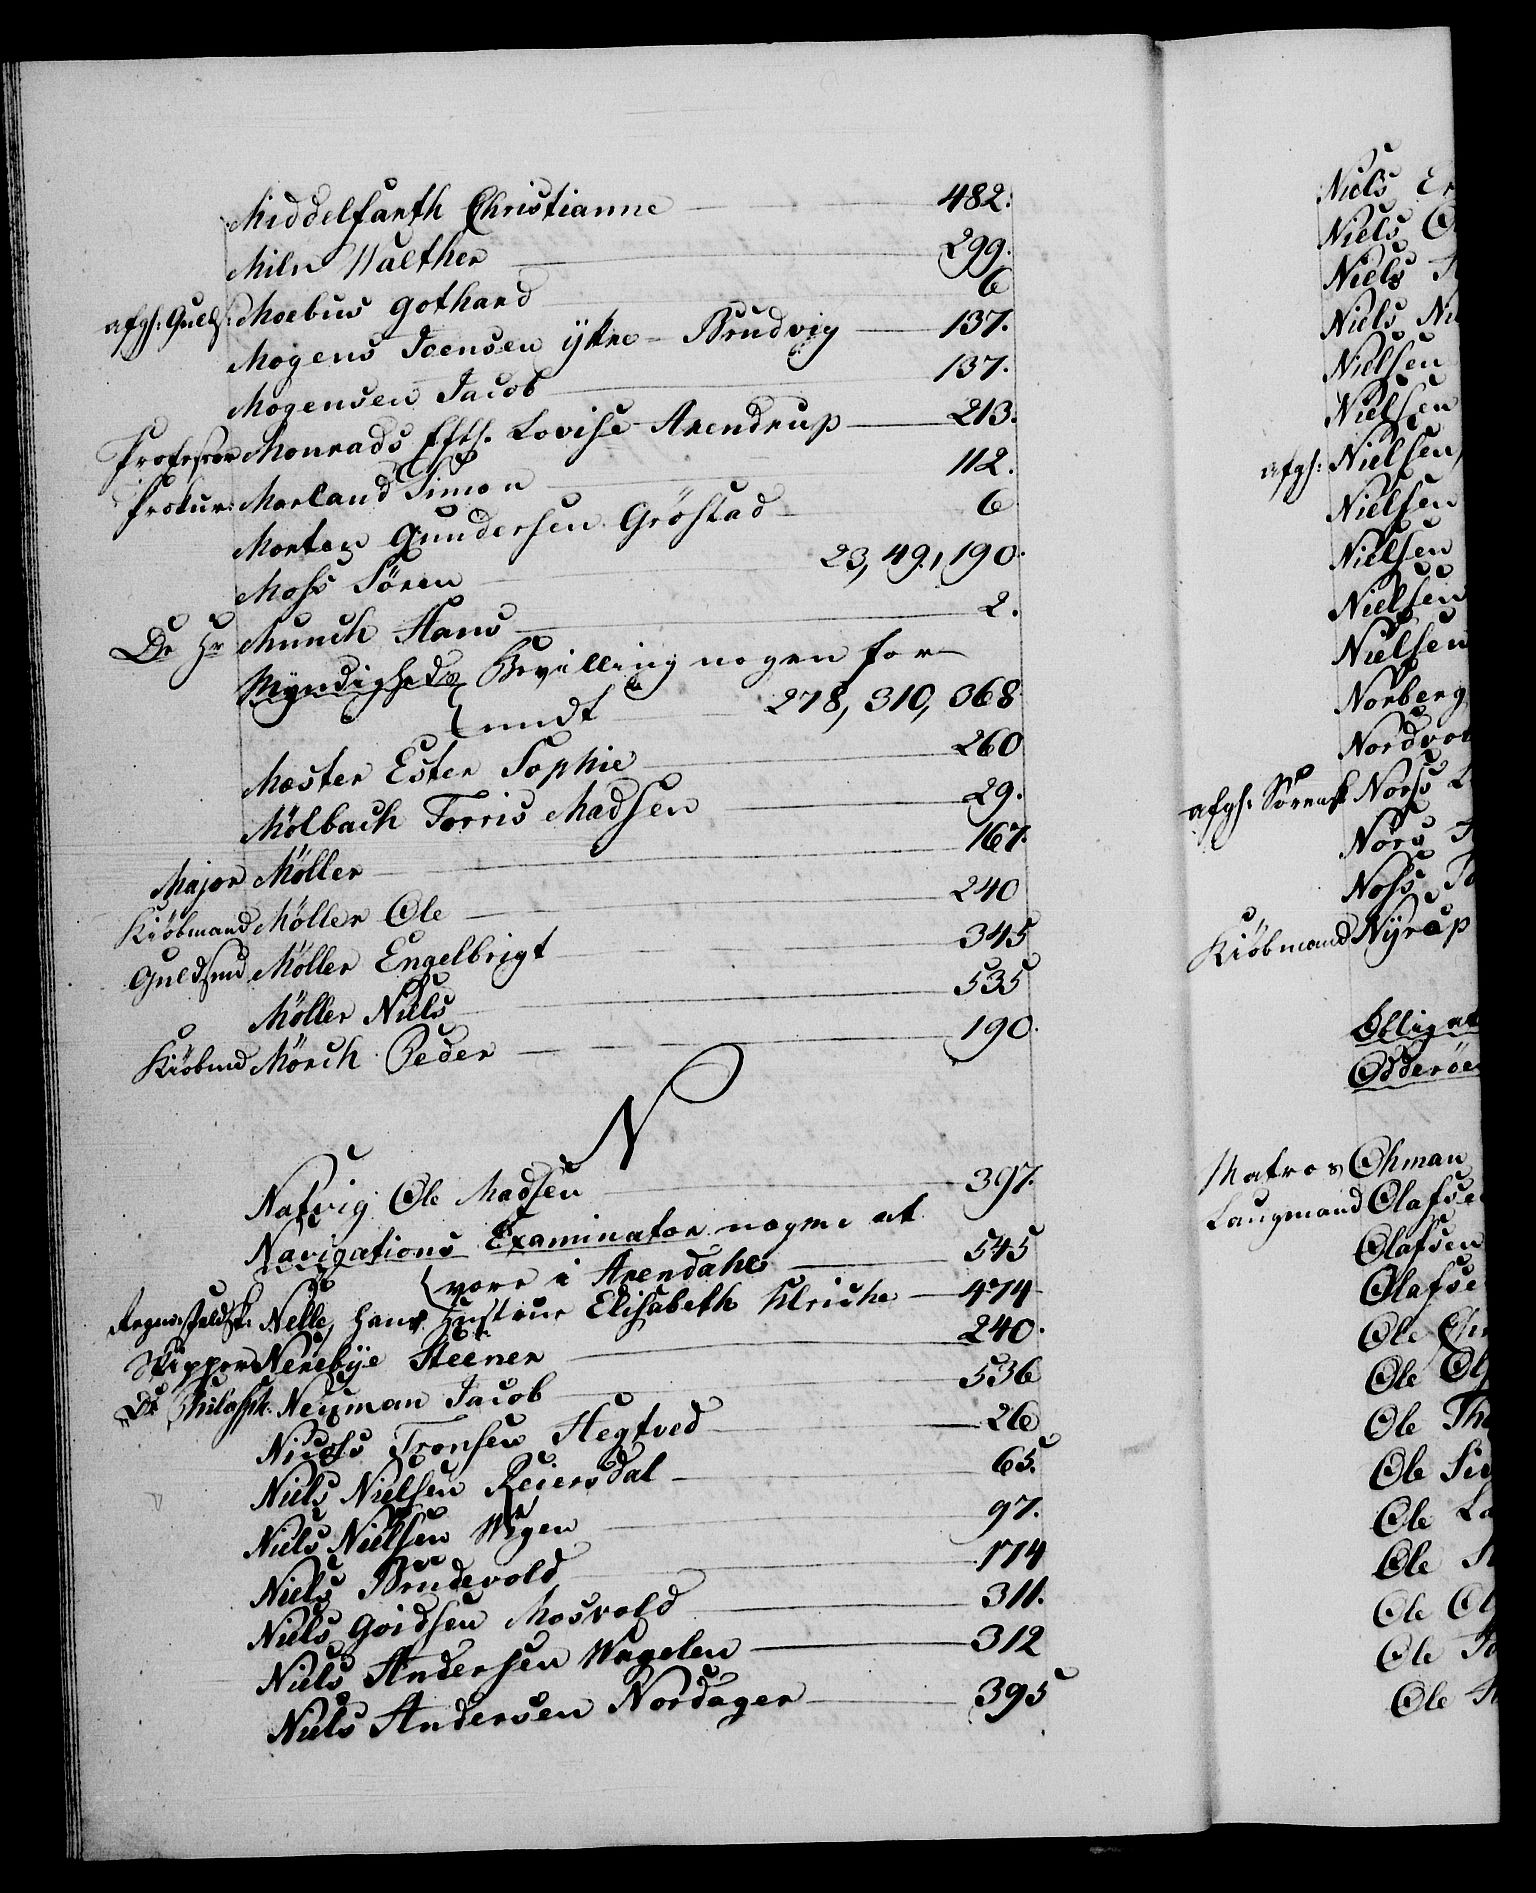 Middelfarth Christianne 482.
Miln Walther 299.
afgh: Gulds: Moebius Gothard 6
Mogens Joensen yttre Brudvig 137.
Mogensen Jacob 137.
Professor Monrads Efth. Lovise Arendrup 213.
Prokur: Morland Simon 112.
Morten Gundersen Gröstad 6
Moss Sören 23, 49, 190.
Dr Hr Munch Hans 2.
Myndigheds Bevilling nogen for
undt 278, 310, 368
Mæster Ester Sophie 260
Mölbach Torris Madsen 29.
Major Möller 167.
Kiöbmand Möller Ole 240
Guldsmd Möller Engelbrigt 345
Möller Niels 535
Kiöbmd Mörch Peder 190.
N
Natvig Ole Madsen 397.
Navigations Examinator nogen at
være i Arendahl 545
Nelle, hans Hustrue Elisabeth Ulriche 474
Skipper Nerebÿe Steener 240.
Dr Philosph. Neuman Jacob 536
Nicols Tronsen Hegtved 26
Niels Nielsen Reiersdal 65.
Niels Nielsen Wigen 97.
Niels Brudevold 174
Niels Goidsen Mosvold 311.
Niels Andersen Wagelen 312
Niels Andersen Nordager 395
Niels
Niels
Niels
Niels
Nielsen
Nielsen
afgh: Nielsen,
Nielsen
Nielsen
Nielsen
Nielsen
Norberg
afgh. Sorensk Norss
Nörs
Noss
Kiöbmand Nÿrup
Matros Ohman
Laugmand
Olafsen
Ole
Ole
Ole
Ole
Ole
Ole
Ole
Ole
Ole